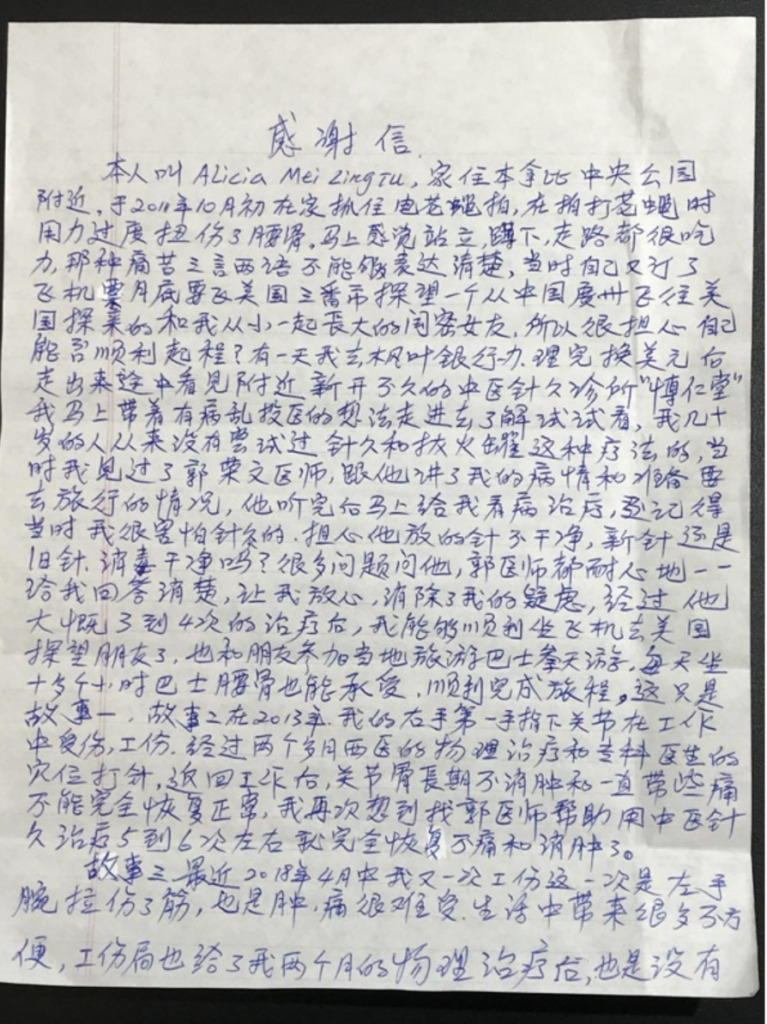 感谢信.
本人叫 Alicia Mei Ling Tu, 家住本拿比中央公园
附近, 于2011年10月初在家抓住电苍蝇拍, 在拍打苍蝇时
用力过度扭伤了腰骨. 马上感觉站立, 蹲下, 走路都很吃
力, 那种痛苦三言两语不能够表达清楚, 当时自己又订了
飞机票月底要飞美国三番市探望一个从中国广州飞往美
国探亲的和我从小一起長大的闺密女友, 所以很担心自己
能否顺利起程? 有一天我去枫叶银行办理完换美元后
走出来途中看见附近新开不久的中医针灸诊所"博仁堂"
我马上带着有病乱投医的想法走进去了解试试看, 我几十
岁的人从来没有尝试过针灸和拔火罐这种疗法的, 当
时我见过了郭荣文医师, 跟他讲了我的病情和准备要
去旅行的情况, 他听完后马上给我看病治疗, 还记得
当时我很害怕针灸的. 担心他放的针不干净, 新针还是
旧针. 消毒干净吗? 很多问题问他, 郭医师都耐心地一一
给我回答清楚, 让我放心, 消除了我的疑虑, 经过他
大慨3到4次的治疗后, 我能够顺利坐飞机去美国
探望朋友了, 也和朋友参加当地旅游巴士拳天游, 每天坐
十多个小时巴士腰骨也能承受, 顺利完成旅程, 这只是
故事一, 故事二在2013年. 我的右手第一手指下关节在工作
中受伤, 工伤. 经过两个多月西医的物理治疗和专科医生的
穴位打针, 返回工作后, 关节骨長期不消肿和一直带些痛
不能完全恢复正常, 我再次想到找郭医师帮助用中医针
灸治疗5到6次左右就完全恢复不痛和消肿了。
故事三 最近2018年4月中我又一次工伤这一次是左手
腕拉伤了筋, 也是肿. 痛很难受. 生活中带来很多不方
便, 工伤局也给了我两个月的物理治疗后, 也是没有